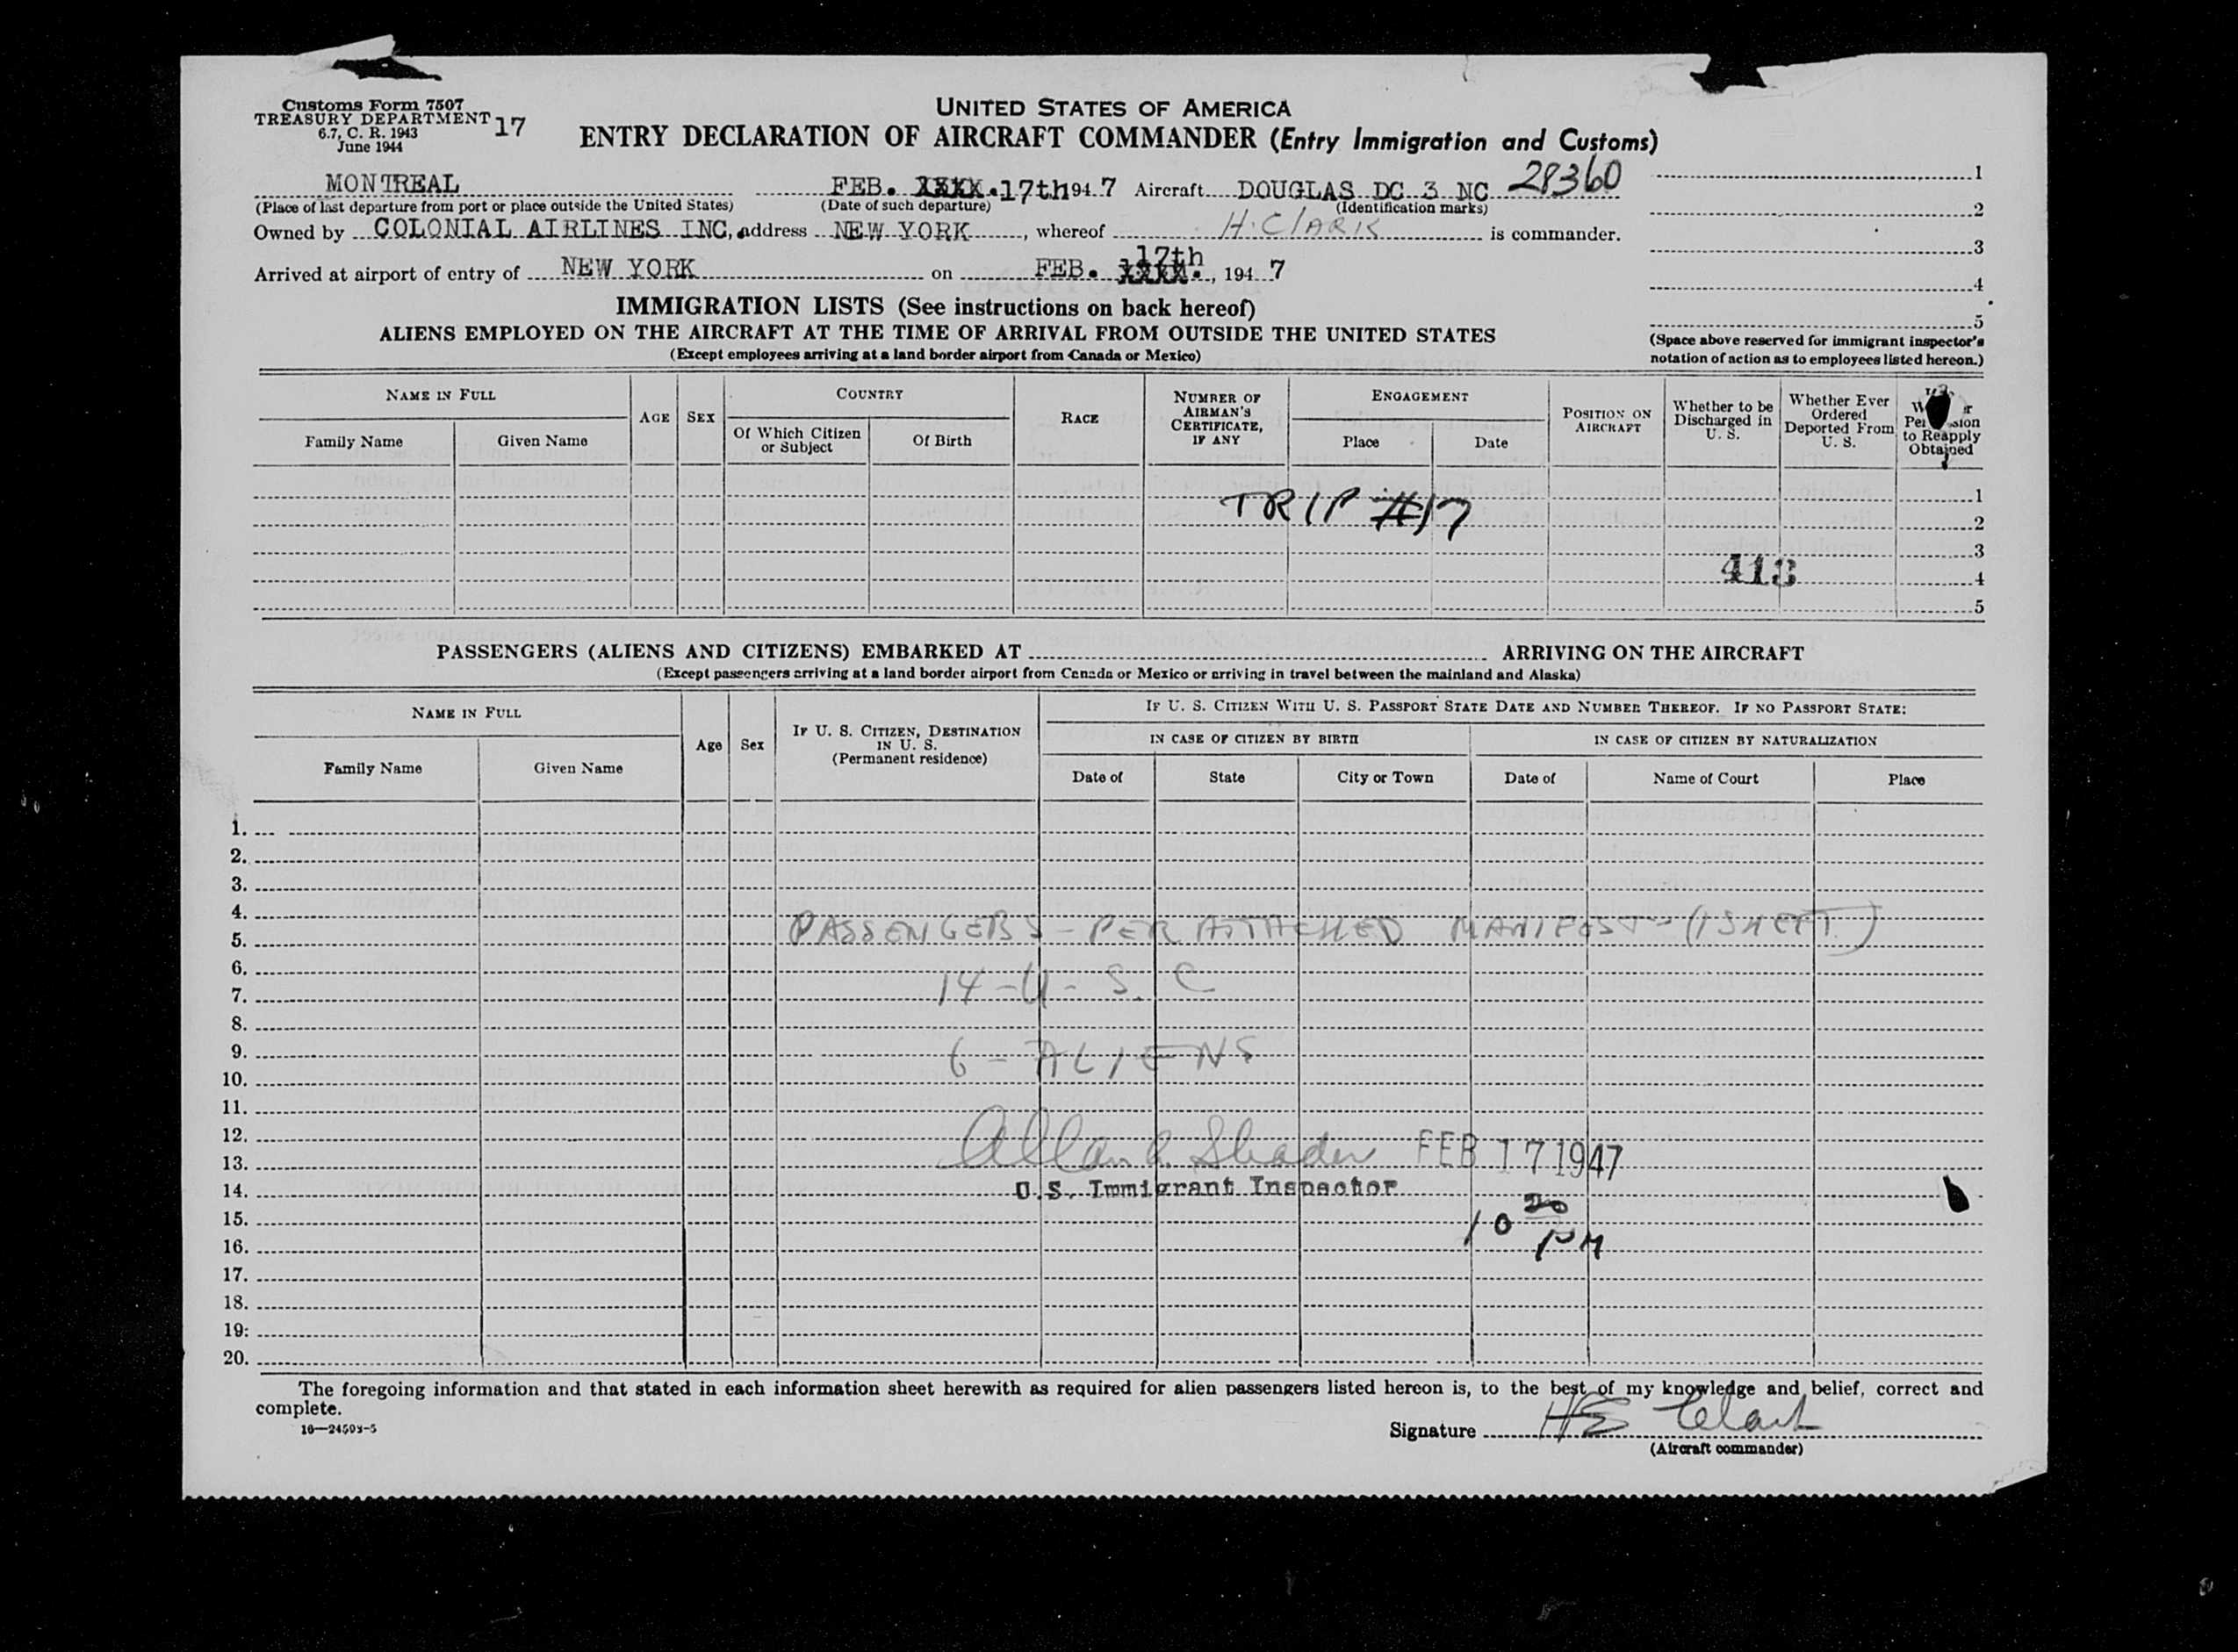 Customs Form 7507
TREASURY DEPARTMENT
6.7, C. R. 1943
June 1944
17
UNITED STATES OF AMERICA
ENTRY DECLARATION OF AIRCRAFT COMMANDER (Entry Immigration and Customs)
MONTREAL FEB. XXXX.17th 194 7 Aircraft DOUGLAS DC 3 NC 28360
(Place of last departure from port or place outside the United States) (Date of such departure) (Identification marks)
Owned by COLONIAL AIRLINES INC, address NEW YORK, whereof H. CLARK is commander.
Arrived at airport of entry of NEW YORK on FEB. XXXX. 17th, 194 7
1
2
3
4
5
(Space above reserved for immigrant inspector's
notation of action as to employees listed hereon.)
IMMIGRATION LISTS (See instructions on back hereof)
ALIENS EMPLOYED ON THE AIRCRAFT AT THE TIME OF ARRIVAL FROM OUTSIDE THE UNITED STATES
(Except employees arriving at a land border airport from Canada or Mexico)
NAME IN FULL
Family Name
Given Name
AGE
SEX
COUNTRY
Of Which Citizen
or Subject
Of Birth
RACE
NUMBER OF
AIRMAN'S
CERTIFICATE,
IF ANY
ENGAGEMENT
Place
Date
POSITION ON
AIRCRAFT
Whether to be
Discharged in
U. S.
Whether Ever
Ordered
Deported From
U. S.
to Reapply
Obtained
1
TRIP #17
2
3
413
4
5
PASSENGERS (ALIENS AND CITIZENS) EMBARKED AT ARRIVING ON THE AIRCRAFT
(Except passengers arriving at a land border airport from Canada or Mexico or arriving in travel between the mainland and Alaska)
NAME IN FULL
Family Name
Given Name
Age
Sex
IF U. S. CITIZEN, DESTINATION
IN U. S.
(Permanent residence)
IF U. S. CITIZEN WITH U. S. PASSPORT STATE DATE AND NUMBER THEREOF. IF NO PASSPORT STATE:
IN CASE OF CITIZEN BY BIRTH
Date of
State
City or Town
IN CASE OF CITIZEN BY NATURALIZATION
Date of
Name of Court
Place
1.
2.
3.
4.
5. PASSENGERS - PER ATTACHED MANIFEST - (1 SHEET)
6.
7. 14 - U - S. C
8.
9. 6 - ALIENS
10.
11.
12.
13. Allan FEB 17 1947
14. U.S. Immigrant Inspector
15. 10 20
16. PM
17.
18.
19.
20.
The foregoing information and that stated in each information sheet herewith as required for alien passengers listed hereon is, to the best of my knowledge and belief, correct and
complete.
16—24503-5
Signature H E Clark
(Aircraft commander)